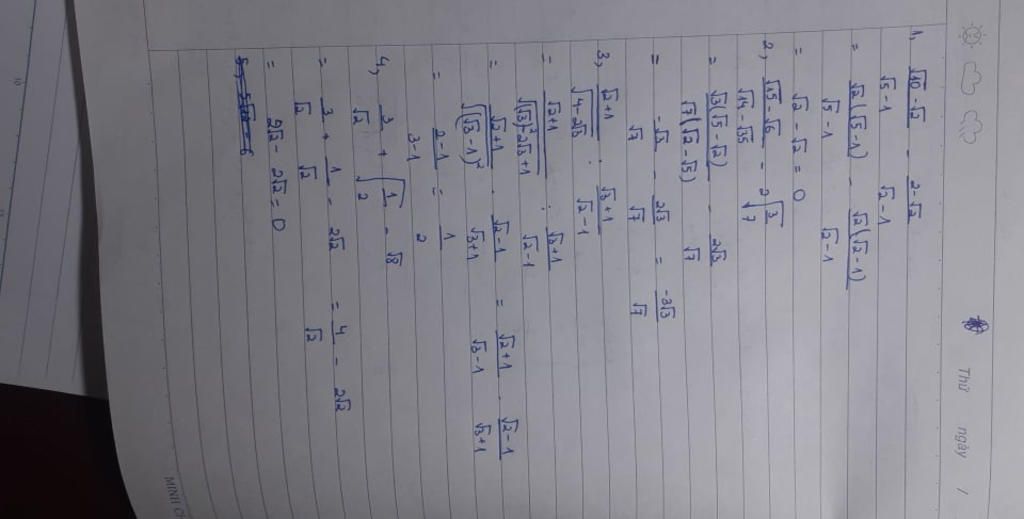 Thứ ngày /
1, (√10 - √2)/(√5 - 1) - (2 - √2)/(√2 - 1)
= √2(√5 - 1)/(√5 - 1) - √2(√2 - 1)/(√2 - 1)
= √2 - √2 = 0
2, (√15 - √6)/(√14 - √35) - 2√(3/7)
= √3(√5 - √2)/√7(√2 - √5) - 2√3/√7
= -√3/√7 - 2√3/√7 = -3√3/√7
3, (√2 + 1)/√(4 - 2√3) : (√3 + 1)/(√2 - 1)
= (√2 + 1)/√((√3)² - 2√3 + 1) : (√3 + 1)/(√2 - 1)
= (√2 + 1)/√((√3 - 1)²) . (√2 - 1)/(√3 + 1) = (√2 + 1)/(√3 - 1) . (√2 - 1)/(√3 + 1)
= (2 - 1)/(3 - 1) = 1/2
4, 3/√2 + √(1/2) - √8
= 3/√2 + 1/√2 - 2√2 = 4/√2 - 2√2
= 2√2 - 2√2 = 0